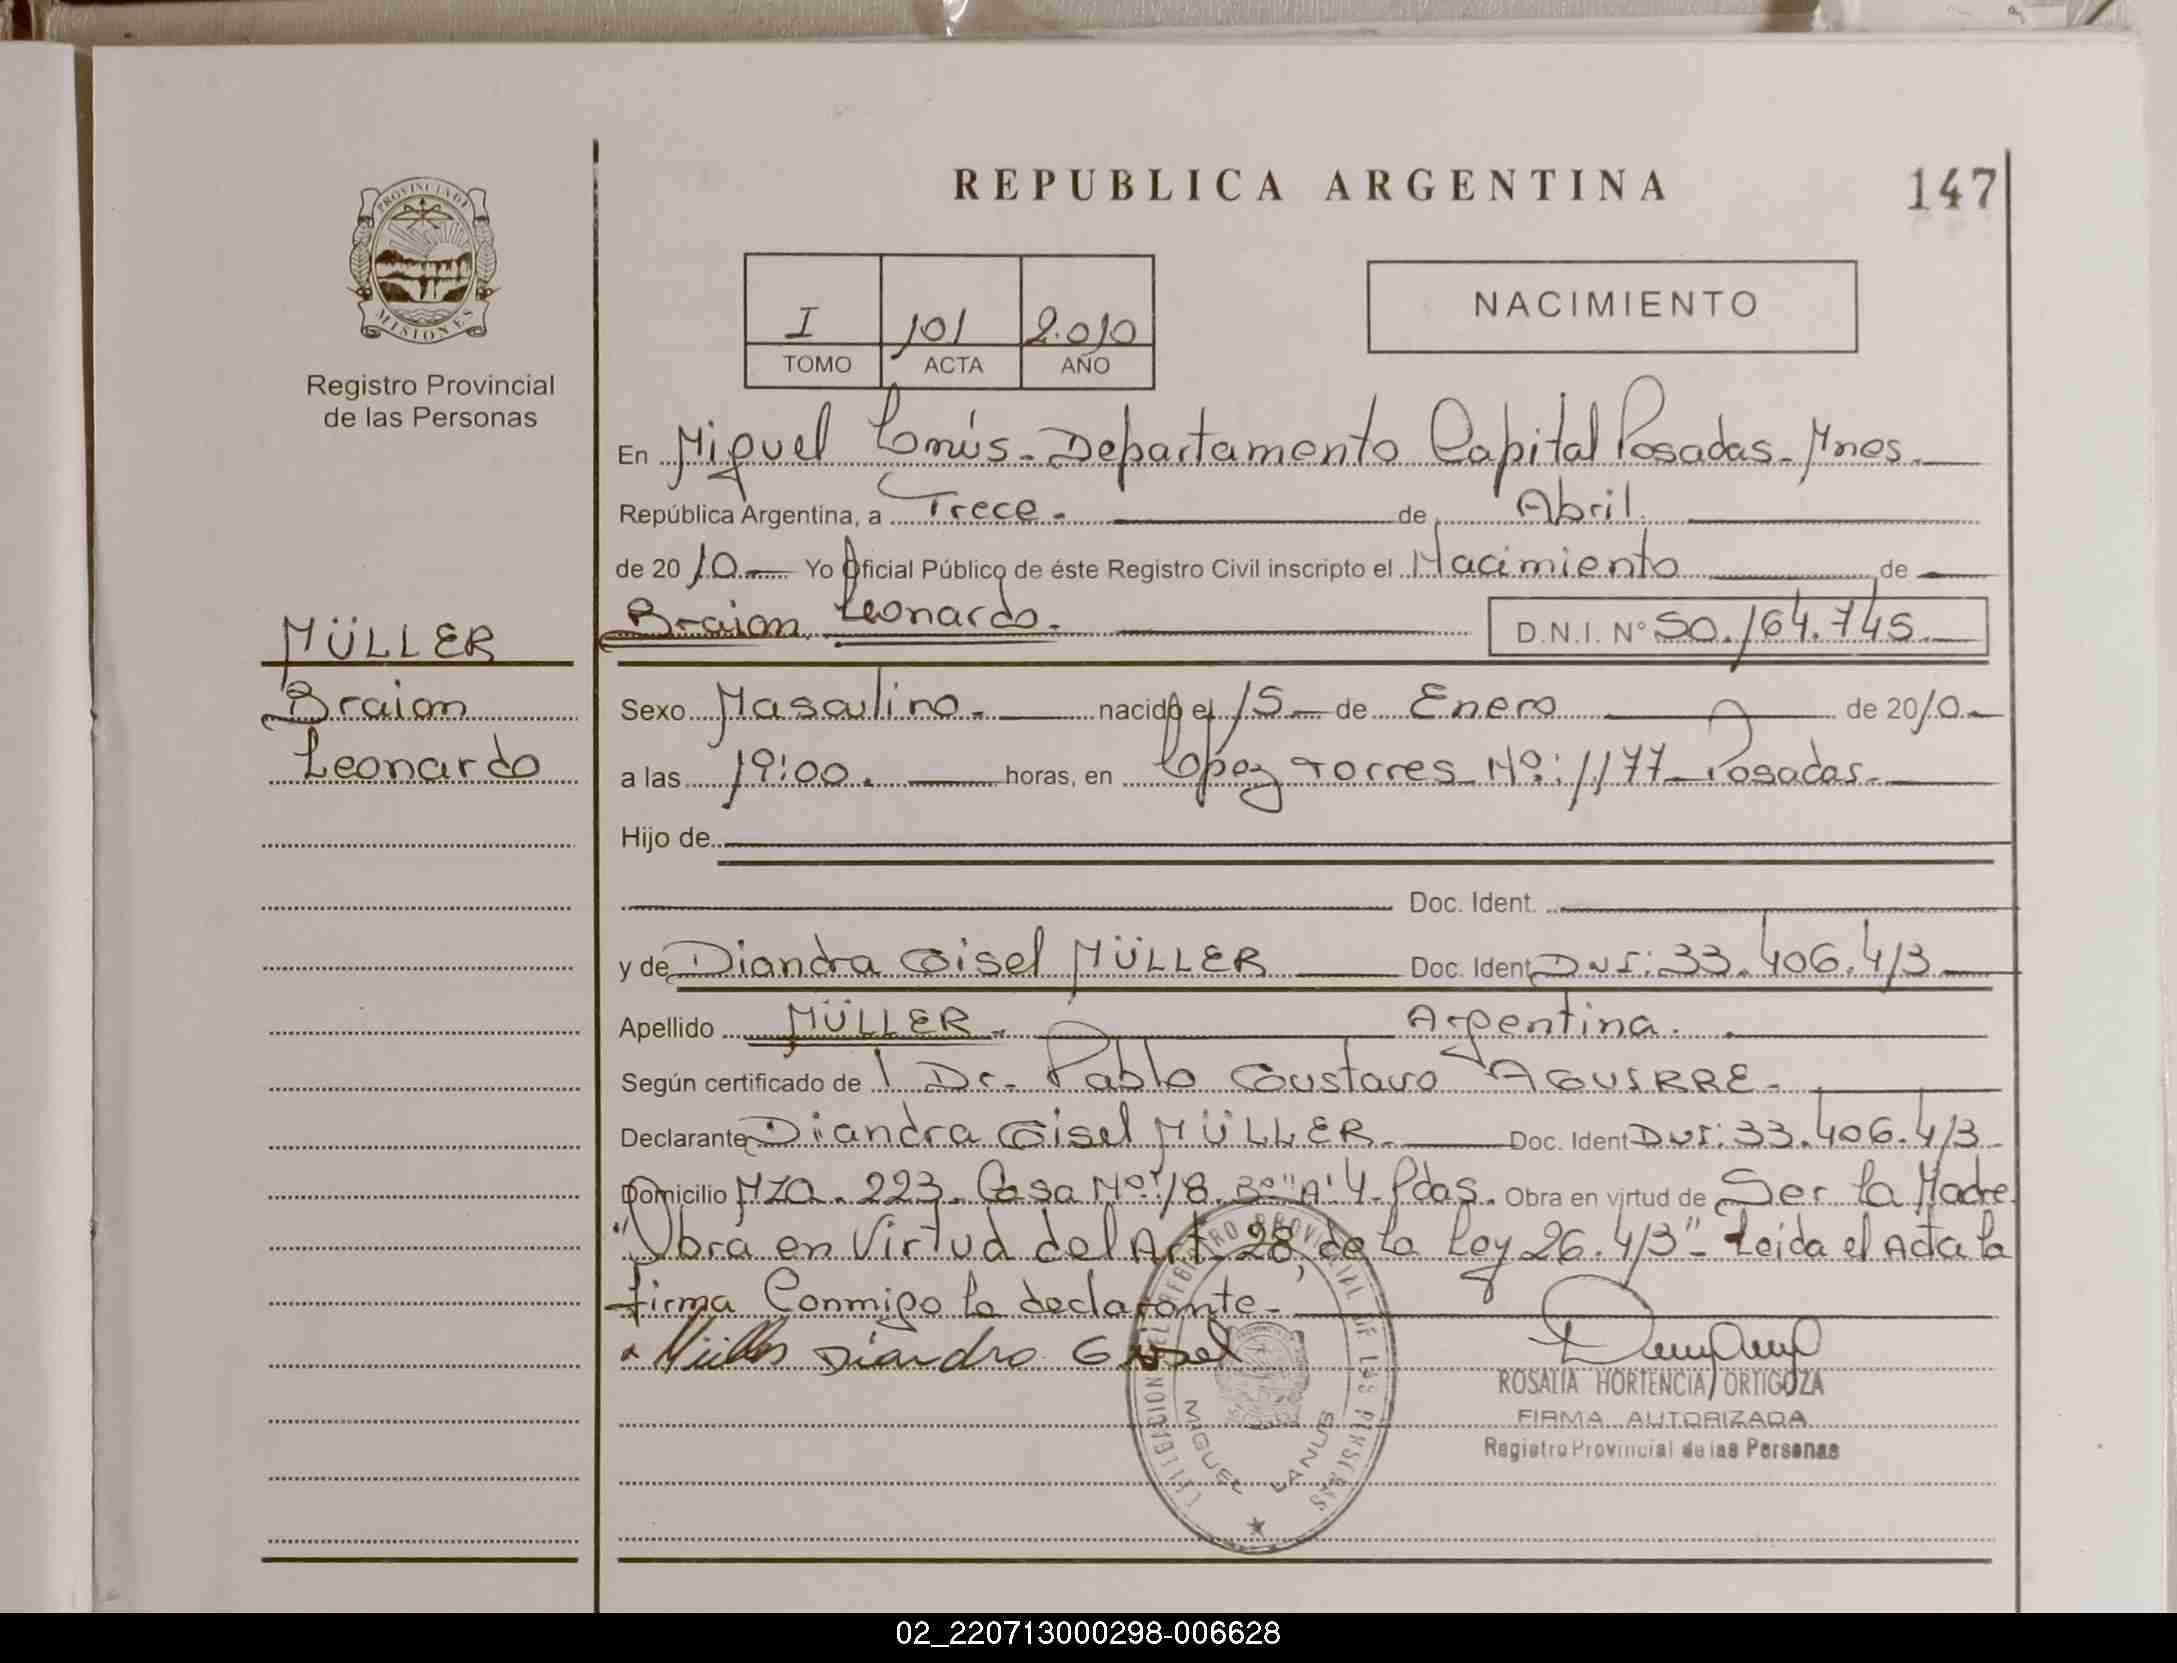 REPUBLICA ARGENTINA
147
PROVINCIA DE
MISIONES
Registro Provincial
de las Personas
I 101 2.010
TOMO ACTA AÑO
NACIMIENTO
En Miguel Lanús - Departamento Capital Posadas - Mnes.
República Argentina, a Trece. de Abril.
de 2010 Yo Oficial Público de éste Registro Civil inscripto el Nacimiento de
Braian Leonardo. D.N.I. Nº 50.164.745
MÜLLER
Braian
Leonardo
Sexo Masculino. nacido el 15 de Enero de 2010
a las 19:00. horas, en López Torres Nº: 1177 Posadas.
Hijo de
Doc. Ident.
y de Diandra Gisel MÜLLER Doc. Ident DNI: 33.406.413
Apellido MÜLLER. Argentina.
Según certificado de Dr. Pablo Gustavo AGUIRRE.
Declarante Diandra Gisel MÜLLER. Doc. Ident DNI: 33.406.413
Domicilio MZA. 223. Casa Nº: 18. Bº "A" 4. Pdas. Obra en virtud de Ser la Madre.
"Obra en Virtud del Art. 28, de la Ley 26.413" - Leida el Acta la
firma Conmigo la declarante.
Müller Diandra Gisel
DELEGACION DEL REGISTRO PROVINCIAL DE LAS PERSONAS
MIGUEL LANUS
ROSALIA HORTENCIA ORTIGOZA
FIRMA AUTORIZADA
Registro Provincial de las Personas
02_220713000298-006628